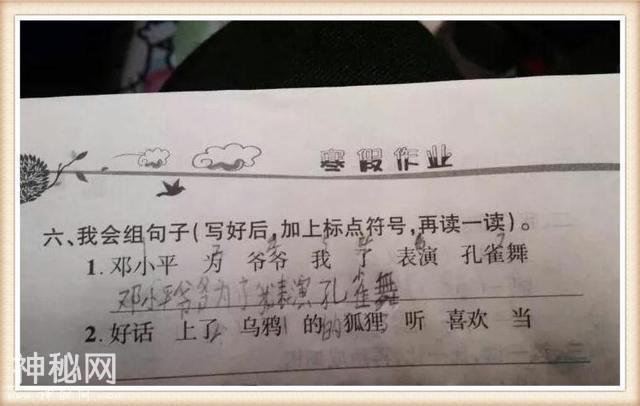 寒假作业
六、我会组句子(写好后,加上标点符号,再读一读)。
1. 邓小平 为 爷爷 我 了 表演 孔雀舞
邓小平爷爷为了我表演孔雀舞
2. 好话 上了 乌鸦 的 狐狸 听 喜欢 当
神秘网